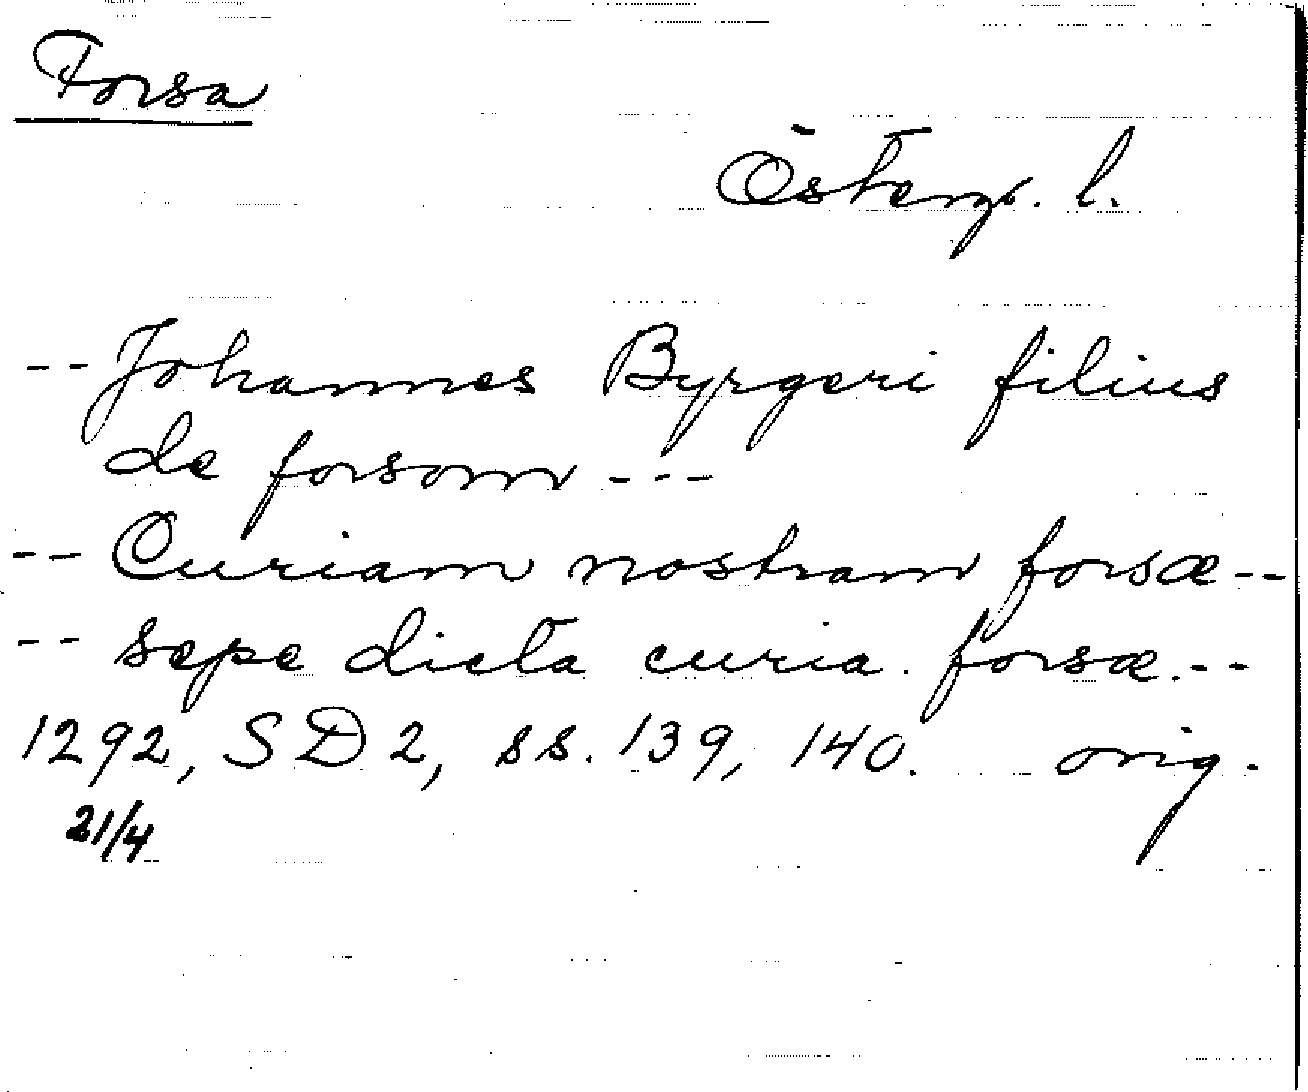 Forsa
Österg. l.
-- Johannes Byrgeri filius
de forsom ---
-- Curiam nostram forsæ --
-- sepe dicta curia forsæ. --
1292, SD 2, ss. 139, 140. orig.
21/4